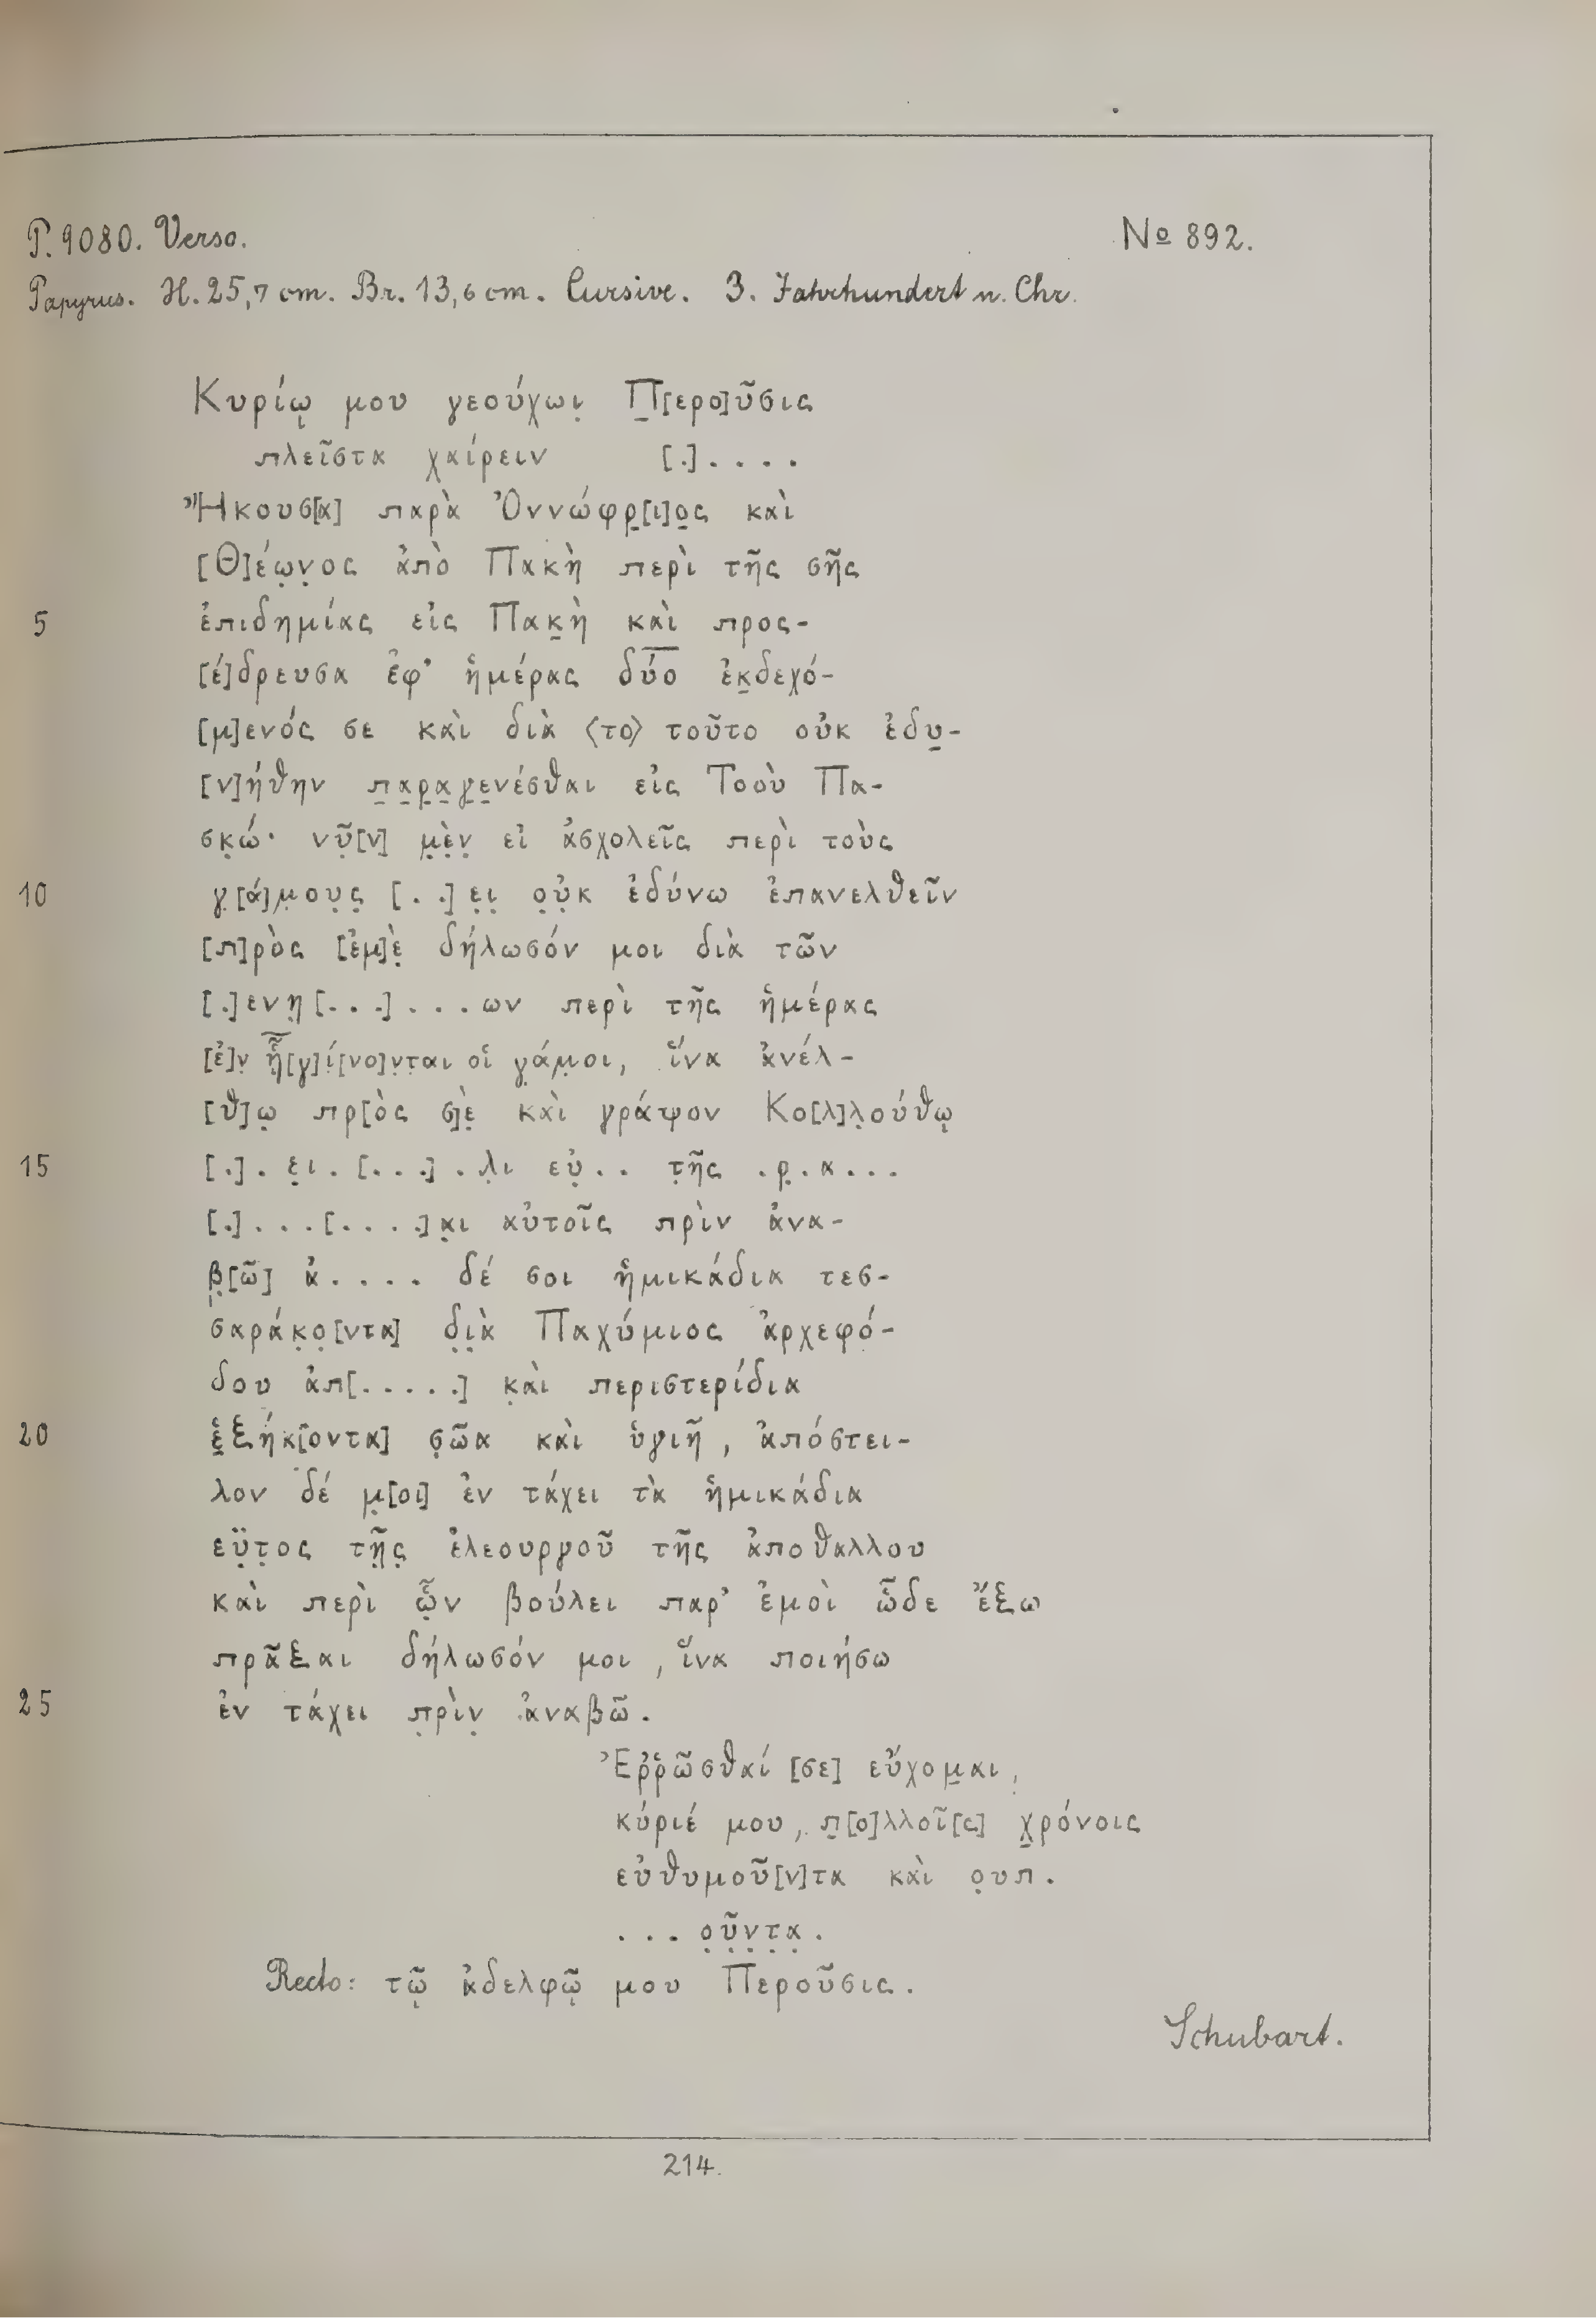 P. 9080. Verso. № 892.
Papyrus. H. 25,7 cm. Br. 13,6 cm. Cursive. 3. Jahrhundert n. Chr.
Κυρίῳ μου γεούχωι̣ Π̣[ερο]ῦσις
πλεῖστα χαίρειν [.]....
Ἤκουσ[α] παρὰ Ὀννώφρ̣[ι]ο̣ς καὶ
[Θ]έω̣ν̣ος ἀπὸ Πακὴ περὶ τῆς σῆς
5 ἐπιδημίας εἰς Πακ̣ὴ καὶ προς-
[έ]δρευσα ἐφ' ἡμέρας δύο ἐκ̣δεχό-
[μ]ενός σε καὶ διὰ 〈το〉 τοῦτο οὐκ ἐδυ̣-
[ν]ήθην π̣α̣ρ̣α̣γ̣ε̣νέσθαι εἰς Τοοὺ Πα-
σκ̣ώ· νῦ̣[ν] μ̣ὲ̣ν̣ εἰ ἀσχολεῖς περὶ τοὺς
10 γ̣[ά]μ̣ου̣ς̣ [..]ε̣ι̣ ο̣ὐ̣κ ἐδύνω ἐπανελθεῖν
[π]ρὸς [ἐμ]ὲ̣ δήλωσόν μοι διὰ τῶν
[.]ενη̣[...]...ων περὶ τῆς ἡμέρας
[ἐ]ν̣ ᾗ̣[γ]ί̣[νο]ν̣τ̣αι οἱ γ̣άμ̣οι, ἵνα ἀνέλ-
[θ]ω̣ πρ[ὸς σ]ὲ̣ καὶ γράψον Κο[λ]λ̣ούθῳ
15 [.].ε̣ι.[...].λ̣ι εὐ̣.. τ̣ῆς .ρ̣.α...
[.]...[....]α̣ι αὐτοῖς πρὶν ἀνα-
β̣[ῶ] ἀ.... δέ σοι ἡμικάδια τεσ-
σαράκ̣ο̣[ντα] δ̣ι̣ὰ Παχύμιος ἀρχεφό-
δου ἀπ[.....] κ̣αὶ περιστερίδια
20 ἑ̣ξήκ[οντα] σ̣ῶα καὶ ὑγιῆ, ἀπόστει-
λον δέ μ̣[οι] ἐν τάχει τὰ ἡμικάδια
εϋ̣τ̣ος τῆ̣ς̣ ἐλεουργοῦ τῆς ἀποθαλλου
καὶ περὶ ὧ̣ν βούλει παρ' ἐμοὶ ὧδε ἔξω
πρᾶξαι δήλωσόν μοι, ἵνα ποιήσω
25 ἐν τάχει π̣ρὶν̣ ἀναβῶ.
Ἐρ̣ῥῶσθαί [σε] εὔχομ̣αι,
κύριέ μου, π̣[ο]λλοῖ[ς] χ̣ρόνοις
εὐθυμοῦ[ν]τα καὶ ο̣υπ.
...ο̣ῦ̣ν̣τ̣α̣.
Recto: τῷ ἀδελφῷ μου Περοῦσις.
Schubart.
214.